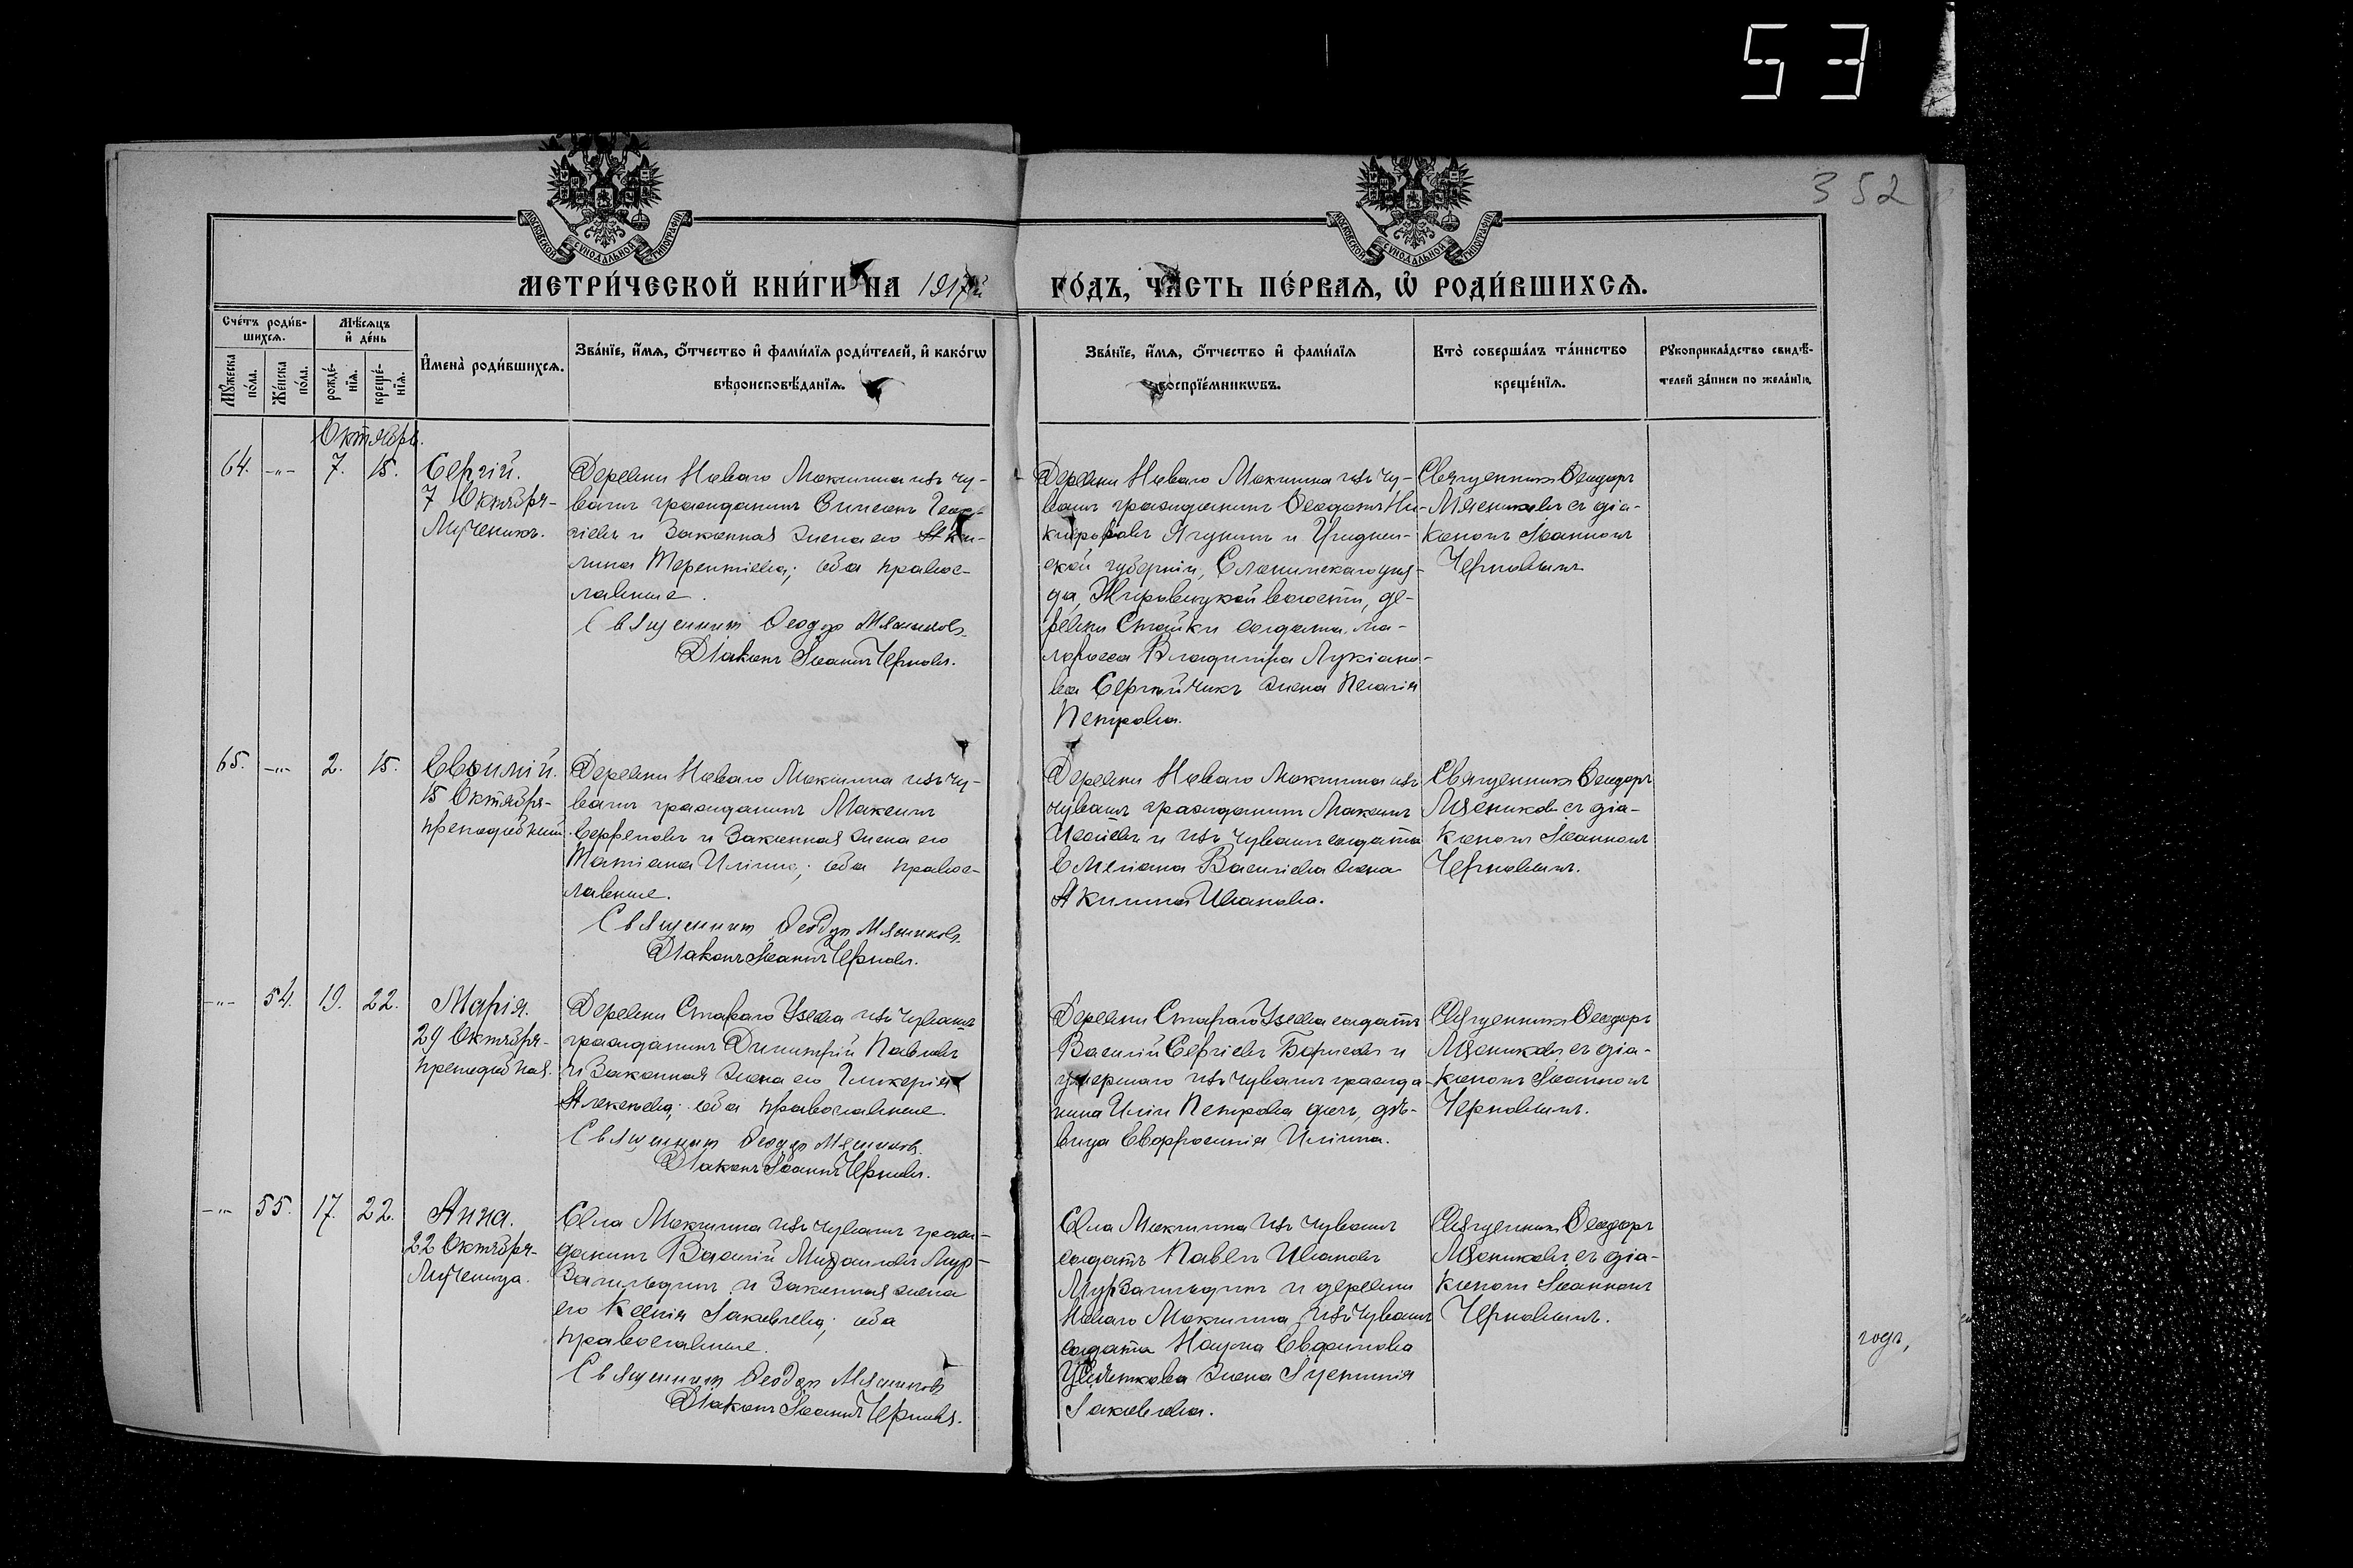 53
352
МЕТРИ́ЧЕСКОЙ КНИ́ГИ НА 1917й
ГО́ДЪ, ЧА́СТЬ ПЕ́РВАѦ, Ѡ҆ РОДИ́ВШИХСѦ.
Сче́тъ роди́в-
шихсѧ.
Мꙋ́жеска по́ла.
Же́нска по́ла.
Мѣ́сѧцъ
и҆ де́нь
рожде́-
нїѧ.
креще́-
нїѧ.
И҆мена̀ роди́вшихсѧ.
Зва́нїе, и҆́мѧ, ѻ҆́тчество и҆ фами́лїѧ роди́телей, и҆ како́гѡ
вѣроисповѣ́данїѧ.
Зва́нїе, и҆́мѧ, ѻ҆́тчество и҆ фами́лїѧ
воспрїе́мникѡвъ.
Кто̀ соверша́лъ та́инство
креще́нїѧ.
Рꙋкоприкла́дство свидѣ́-
телей за́писи по жела́нїю.
Октябрь.
64. -„- 7. 15.
Сергій.
7 Октября-
Мученикъ.
Деревни Новаго Мокшина изъ чу-
вашъ гражданинъ Симеонъ Геор-
гіевъ и законная жена его Аки-
лина Терентіева; оба правос-
лавные.
Священникъ Ѳеодоръ Мясниковъ.
Діаконъ Іоаннъ Черновъ.
Деревни Новаго Мокшина изъ чу-
вашъ гражданинъ Ѳеодотъ Ни-
кифоровъ Ягунинъ и Гродненс-
кой губерніи, Слонимскаго уѣз-
да, Жировицкой волости, де-
ревни Стайки солдата, ма-
лоросса Владиміра Лукіано-
ва Сергейчикъ жена Пелагія
Петровна.
Священникъ Ѳеодоръ
Мясниковъ съ діа-
кономъ Іоанномъ
Черновымъ.
65. -„- 2. 15.
Евѳимій.
15 Октября-
преподобный.
Деревни Новаго Мокшина изъ чу-
вашъ гражданинъ Максимъ
Серапіоновъ и законная жена его
Татіана Иліина; оба правос-
лавные.
Священникъ Ѳеодоръ Мясниковъ.
Діаконъ Іоаннъ Черновъ.
Деревни Новаго Мокшина изъ
чувашъ гражданинъ Максимъ
Исаіевъ и изъ чувашъ солдата
Емеліана Васильева жена
Акилина Иванова.
Священникъ Ѳеодоръ
Мясниковъ съ діа-
кономъ Іоанномъ
Черновымъ.
-„- 54. 19. 22.
Марія.
29 Октября-
преподобная.
Деревни Стараго Узеева изъ чувашъ
гражданинъ Димитрій Павловъ
и законная жена его Гликерія
Алексѣева; оба православные.
Священникъ Ѳеодоръ Мясниковъ.
Діаконъ Іоаннъ Черновъ.
Деревни Стараго Узеева солдатъ
Василій Сергіевъ Борисовъ и
умершаго изъ чувашъ гражда-
нина Иліи Петрова дочь, дѣ-
вица Евфросинія Иліина.
Священникъ Ѳеодоръ
Мясниковъ съ діа-
кономъ Іоанномъ
Черновымъ.
-„- 55. 17. 22.
Анна.
22 Октября-
Мученица.
Села Мокшина изъ чувашъ граж-
данинъ Василій Михаиловъ Мур-
загильдинъ и законная жена
его Ксенія Іаковлева; оба
православные.
Священникъ Ѳеодоръ Мясниковъ
Діаконъ Іоаннъ Черновъ.
Села Мокшина изъ чувашъ
солдатъ Павелъ Ивановъ
Мурзагильдинъ и деревни
Новаго Мокшина изъ чувашъ
солдата Наума Евдокимова
жена Іустинія
Іаковлева.
Священникъ Ѳеодоръ
Мясниковъ съ діа-
кономъ Іоанномъ
Черновымъ.
годъ,